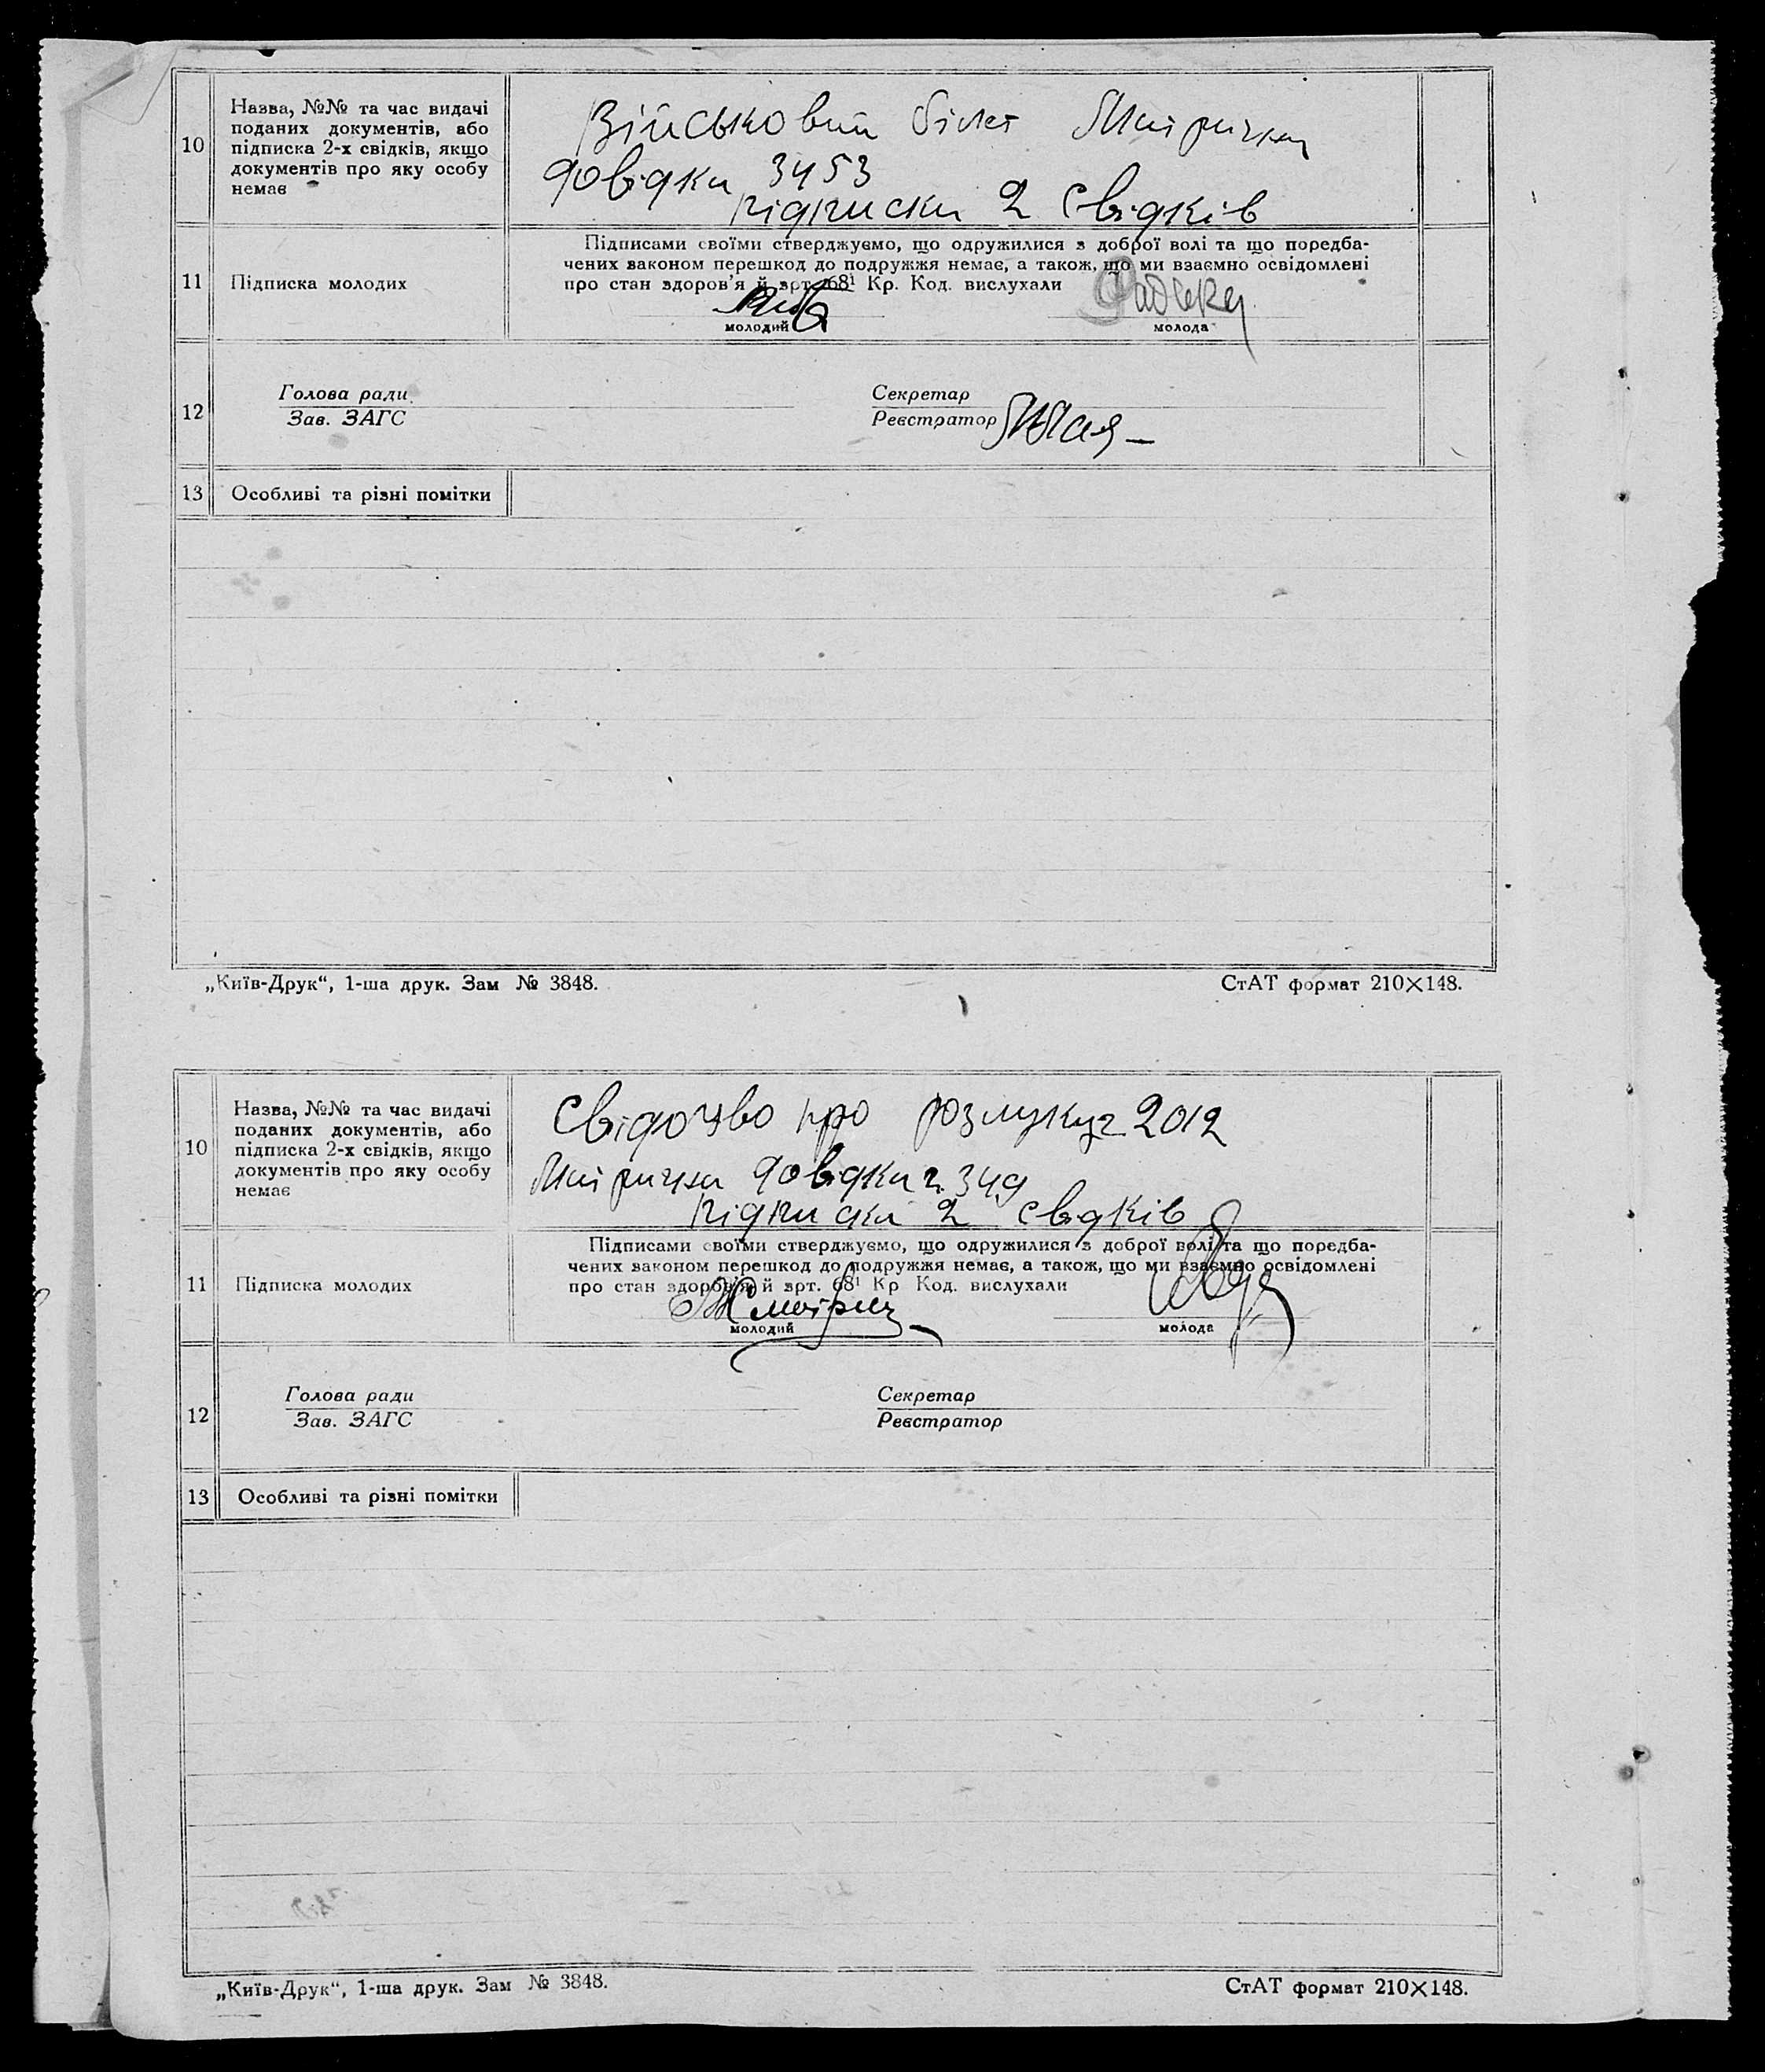 10
Назва, №№ та час видачі
поданих документів, або
підписка 2-х свідків, якщо
документів про яку особу
немає
Військовий білет Митрична
довідки 3453
підписки 2 свідків
11
Підписка молодих
Підписами своїми стверджуємо, що одружилися з доброї волі та що поредба-
чених законом перешкод до подружжя немає, а також, що ми взаємно освідомлені
про стан здоров'я й арт. 68¹ Кр. Код. вислухали
молодий
молода
12
Голова ради
Зав. ЗАГС
Секретар
Реєстратор
13
Особливі та різні помітки
„Київ-Друк“, 1-ша друк. Зам № 3848.
СтАТ формат 210×148.
10
Назва, №№ та час видачі
поданих документів, або
підписка 2-х свідків, якщо
документів про яку особу
немає
Свідоцво про розлуку 2012
Митрична довідки 349
підписки 2 свідків
11
Підписка молодих
Підписами своїми стверджуємо, що одружилися з доброї волі та що поредба-
чених законом перешкод до подружжя немає, а також, що ми взаємно освідомлені
про стан здоров'я й арт. 68¹ Кр Код. вислухали
молодий
молода
12
Голова ради
Зав. ЗАГС
Секретар
Реєстратор
13
Особливі та різні помітки
„Київ-Друк“, 1-ша друк. Зам № 3848.
СтАТ формат 210×148.